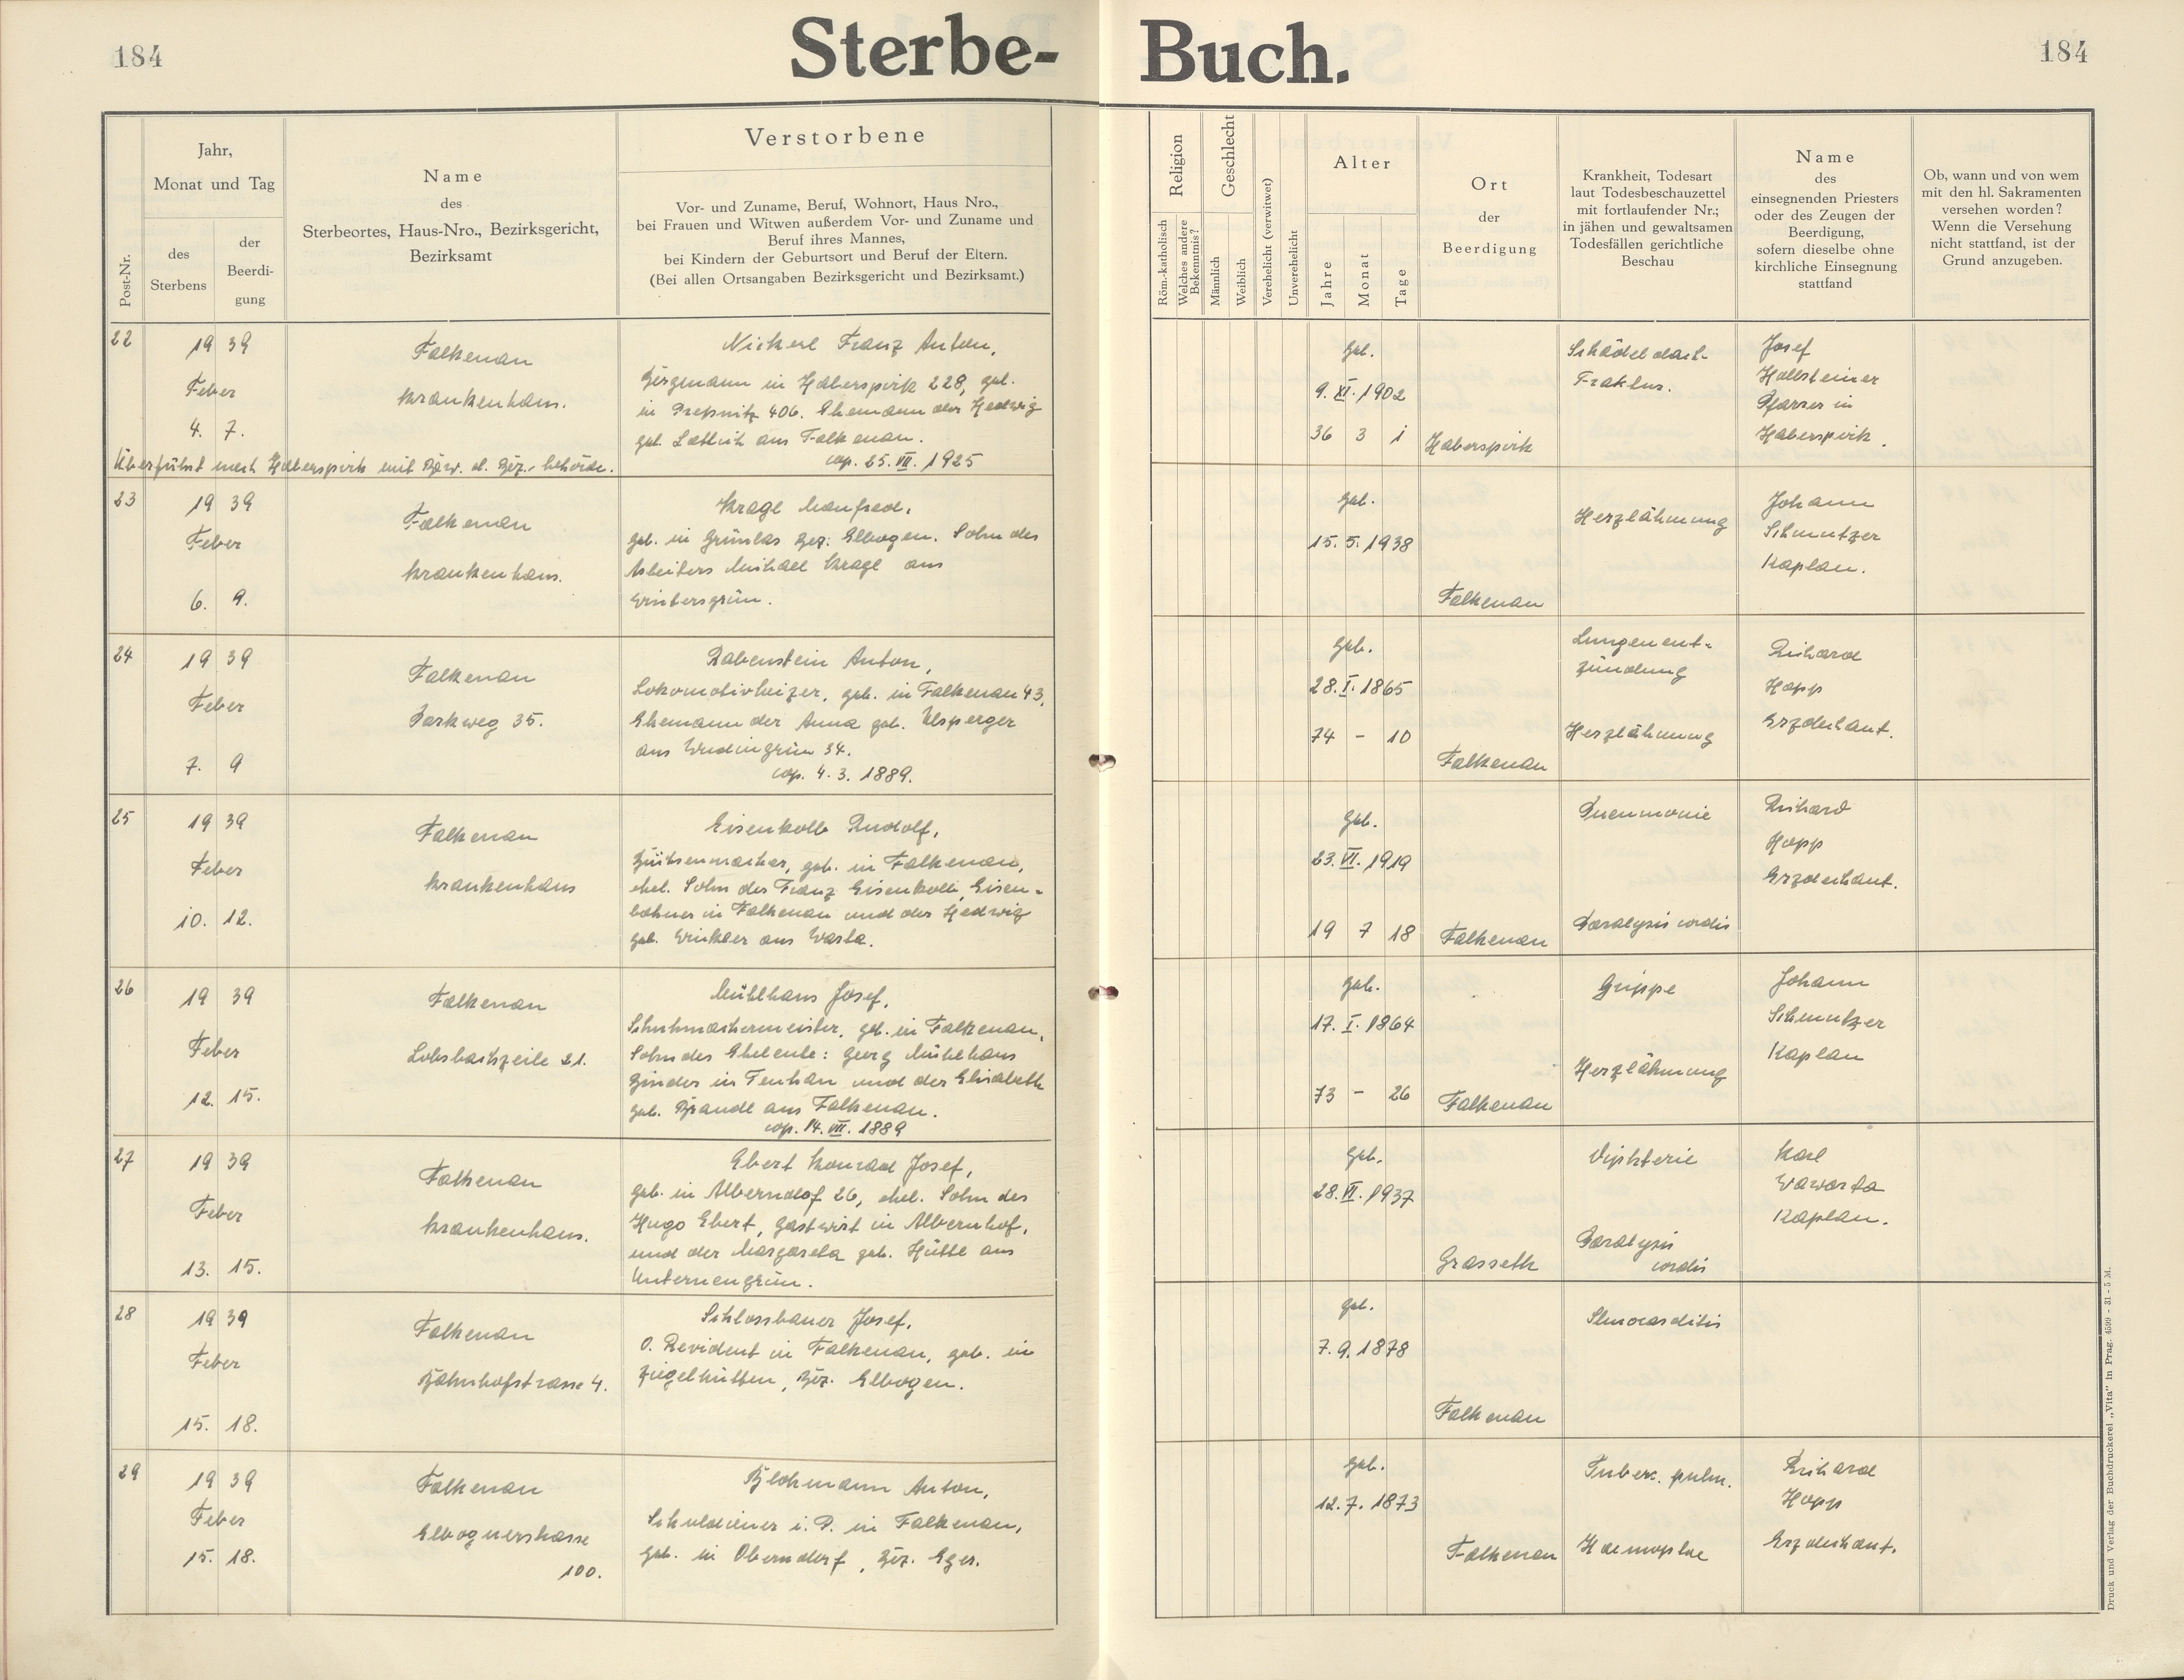 184
Sterbe-
Buch.
184
Post-Nr.
Jahr,
Monat und Tag
des
Sterbens
der
Beerdi-
gung
Name
des
Sterbeortes, Haus-Nro., Bezirksgericht,
Bezirksamt
Verstorbene
Vor- und Zuname, Beruf, Wohnort, Haus Nro.,
bei Frauen und Witwen außerdem Vor- und Zuname und
Beruf ihres Mannes,
bei Kindern der Geburtsort und Beruf der Eltern.
(Bei allen Ortsangaben Bezirksgericht und Bezirksamt.)
Religion
Röm.-katholisch
Welches andere
Bekenntnis?
Geschlecht
Männlich
Weiblich
Verehelicht (verwitwet)
Unverehelicht
Alter
Jahre
Monat
Tage
Ort
der
Beerdigung
Krankheit, Todesart
laut Todesbeschauzettel
mit fortlaufender Nr.;
in jähen und gewaltsamen
Todesfällen gerichtliche
Beschau
Name
des
einsegnenden Priesters
oder des Zeugen der
Beerdigung,
sofern dieselbe ohne
kirchliche Einsegnung
stattfand
Ob, wann und von wem
mit den hl. Sakramenten
versehen worden?
Wenn die Versehung
nicht stattfand, ist der
Grund anzugeben.
22
19 39
Feber
4. 7.
Falkenau
Krankenhaus.
Überführt nach Haberspirk mit Bew. d. Bez.-behörde.
Nickerl Franz Anton,
Bergmann in Haberspirk 228, geb.
in Pressnitz 406. Ehemann der Hedwig
geb. aus Falkenau.
cop. 25. VII. 1925
geb.
9. XI. 1902
36 3 1
Haberspirk
Schädeldach-
Fraktur.
Josef
Hollsteiner
Pfarrer in
Haberspirk.
23
19 39
Feber
6. 9.
Falkenau
Krankenhaus.
Kragl Manfred,
geb. in Grünlas Bez. Elbogen. Sohn des
Arbeiters Michael Kragl aus
Wintersgrün.
geb.
15. 5. 1938
Falkenau
Herzlähmung
Johann
Schmutzer
Kaplan.
24
19 39
Feber
7. 9
Falkenau
Parkweg 35.
Rabenstein Anton,
Lokomotivheizer, geb. in Falkenau 43,
Ehemann der Anna geb. Ulsperger
aus 34.
cop. 4. 3. 1889.
geb.
28. I. 1865
74 - 10
Falkenau
Lungenent-
zündung
Herzlähmung
Richard
Hopp
Erzdechant.
25
19 39
Feber
10. 12.
Falkenau
Krankenhaus
Eisenkolb Rudolf,
Büchsenmacher, geb. in Falkenau,
ehel. Sohn des Franz Eisenkolb, Eisen-
bahner in Falkenau und der Hedwig
geb. Winkler aus Warta.
geb.
23. VI. 1919
19 7 18
Falkenau
Pneumonie
Paralysis cordis
Richard
Hopp
Erzdechant.
26
19 39
Feber
12. 15.
Falkenau
Lobsbachzeile 21.
Mühlhans Josef,
Schuhmachermeister, geb. in Falkenau,
Sohn des Eheleute: Georg Mühlhans
Binder in und der Elisabeth
geb. Brandl aus Falkenau.
cop. 14. VII. 1889
geb.
17. I. 1864
73 - 26
Falkenau
Grippe
Herzlähmung
Johann
Schmutzer
Kaplan
27
19 39
Feber
13. 15.
Falkenau
Krankenhaus.
Ebert Konrad Josef,
geb. in Alberndof 26, ehel. Sohn des
Hugo Ebert, Gastwirt in Albernhof,
und der Margareta geb. Hüttl aus
Unterneugrün.
geb.
28. VI. 1937
Grasseth
Diphterie
Paralysis
cordis
Karl
Wawarta
Kaplan.
28
19 39
Feber
15. 18.
Falkenau
Bahnhofstrasse 4.
Schlossbauer Josef,
O. Revident in Falkenau, geb. in
Ziegelhütten, Bez. Elbogen.
geb.
7. 9. 1878
Falkenau
29
19 39
Feber
15. 18.
Falkenau
Elbognerstrasse
100.
Blohmann Anton,
Schuldiener i. P. in Falkenau,
geb. in Oberndorf, Bez. Eger.
geb.
12. 7. 1873
Falkenau
Tuberc. pulm.
Haemoptoe
Richard
Hopp
Erzdechant.
Druck und Verlag der Buchdruckerei „Vita" in Prag. 4599 - 31 - 5 M.